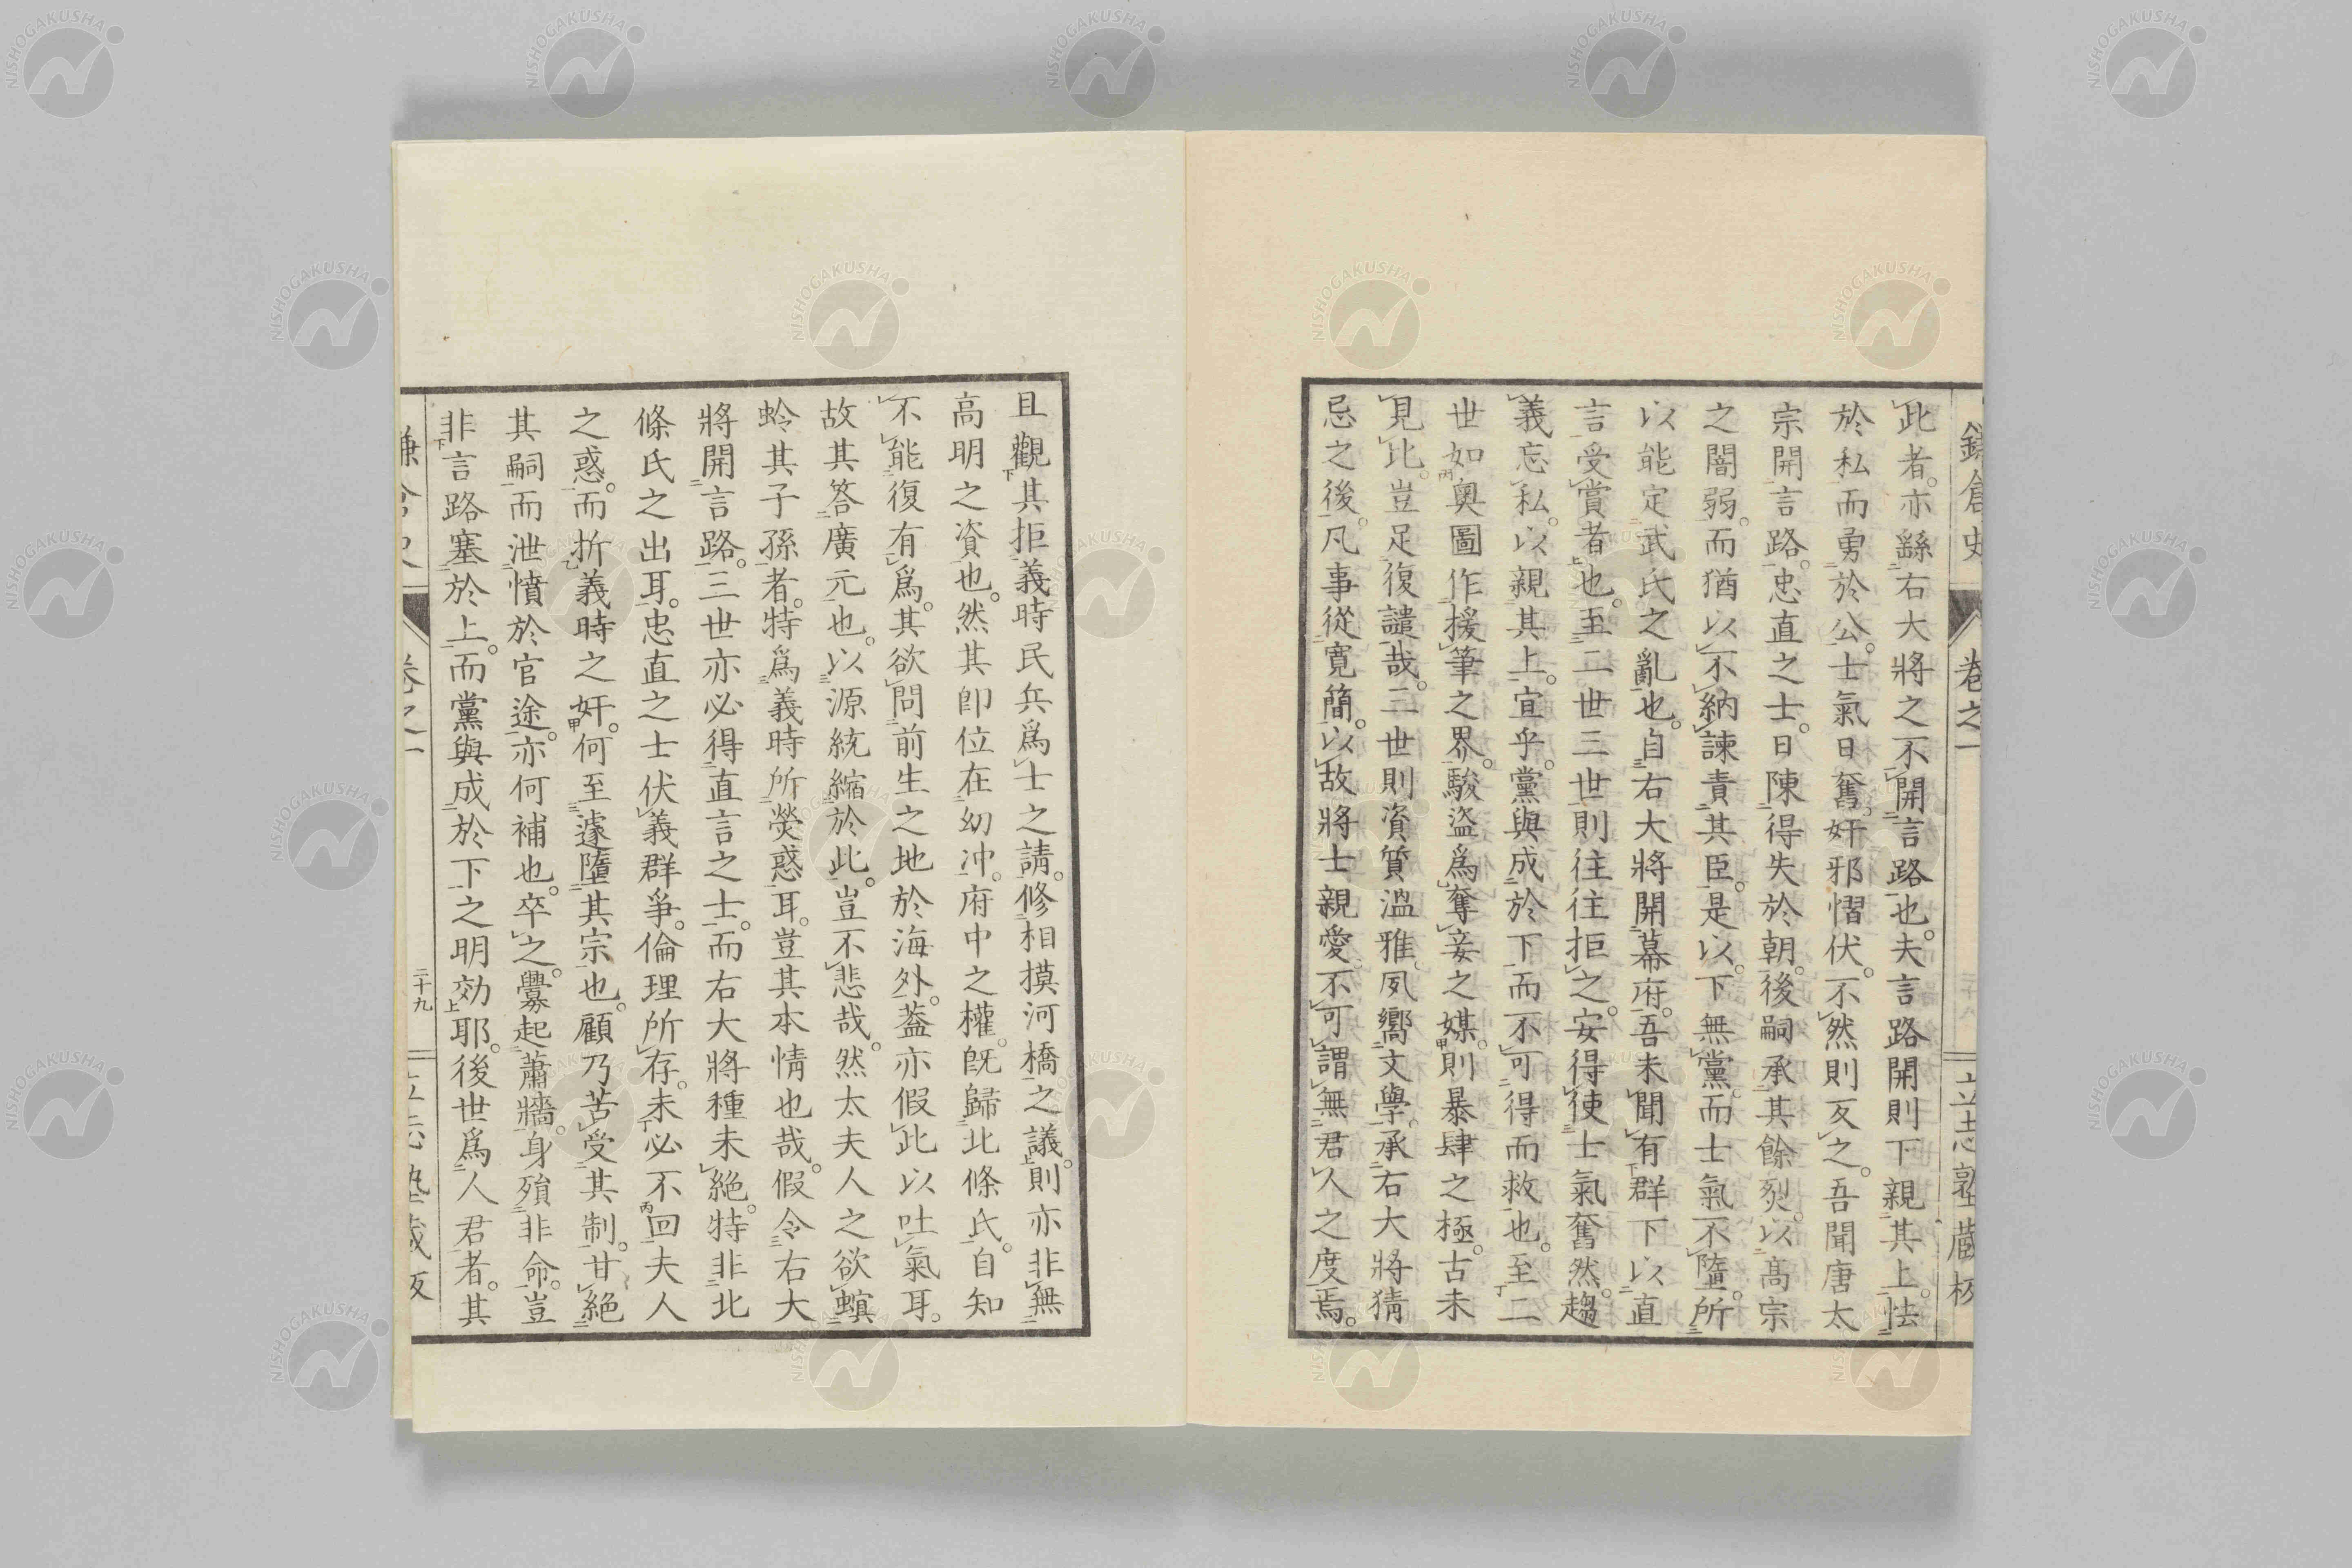 此者。亦繇右大將之不開言路也。夫言路開則下親其上。怯
於私而勇於公。士氣日奮。奸邪慴伏。不然則反之。吾聞唐太
宗開言路。忠直之士。日陳得失於朝。後嗣承其餘烈。以高宗
之闇弱。而猶以不納諫責其臣。是以。下無黨。而士氣不墮。所
以能定武氏之亂也。自右大將開幕府。吾未聞有群下以直
言受賞者也。至二世三世則往往拒之。安得使士氣奮然。趨
義忘私。以親其上。宜乎。黨與成於下而不可得而救也。至二
世如輿圖作援筆之界。駿盜爲奪妾之媒。則暴肆之極。古未
見比。豈足復譴哉。三世則資質溫雅。夙嚮文學。承右大將猜
忌之後。凡事從寬簡。以故將士親愛。不可謂無君人之度焉。
且觀其拒義時民兵爲士之請。修相摸河橋之議。則亦非無
高明之資也。然其卽位在幼冲。府中之權。旣歸北條氏。自知
不能復有爲。其欲問前生之地於海外。蓋亦假此以吐氣耳。
故其答廣元也。以源統縮於此。豈不悲哉。然太夫人之欲螟
蛉其子孫者。特爲義時所熒惑耳。豈其本情也哉。假令右大
將開言路。三世亦必得直言之士。而右大將種未絕。特非北
條氏之出耳。忠直之士伏義群爭。倫理所存。未必不回夫人
之惑。而折義時之奸。何至遽墮其宗也。顧乃苦受其制。甘絕
其嗣而泄憤於官途。亦何補也。卒之。釁起蕭牆。身殞非命。豈
非言路塞於上。而黨與成於下之明効耶。後世爲人君者。其
鎌倉史
卷之一
立志塾藏板
二十九